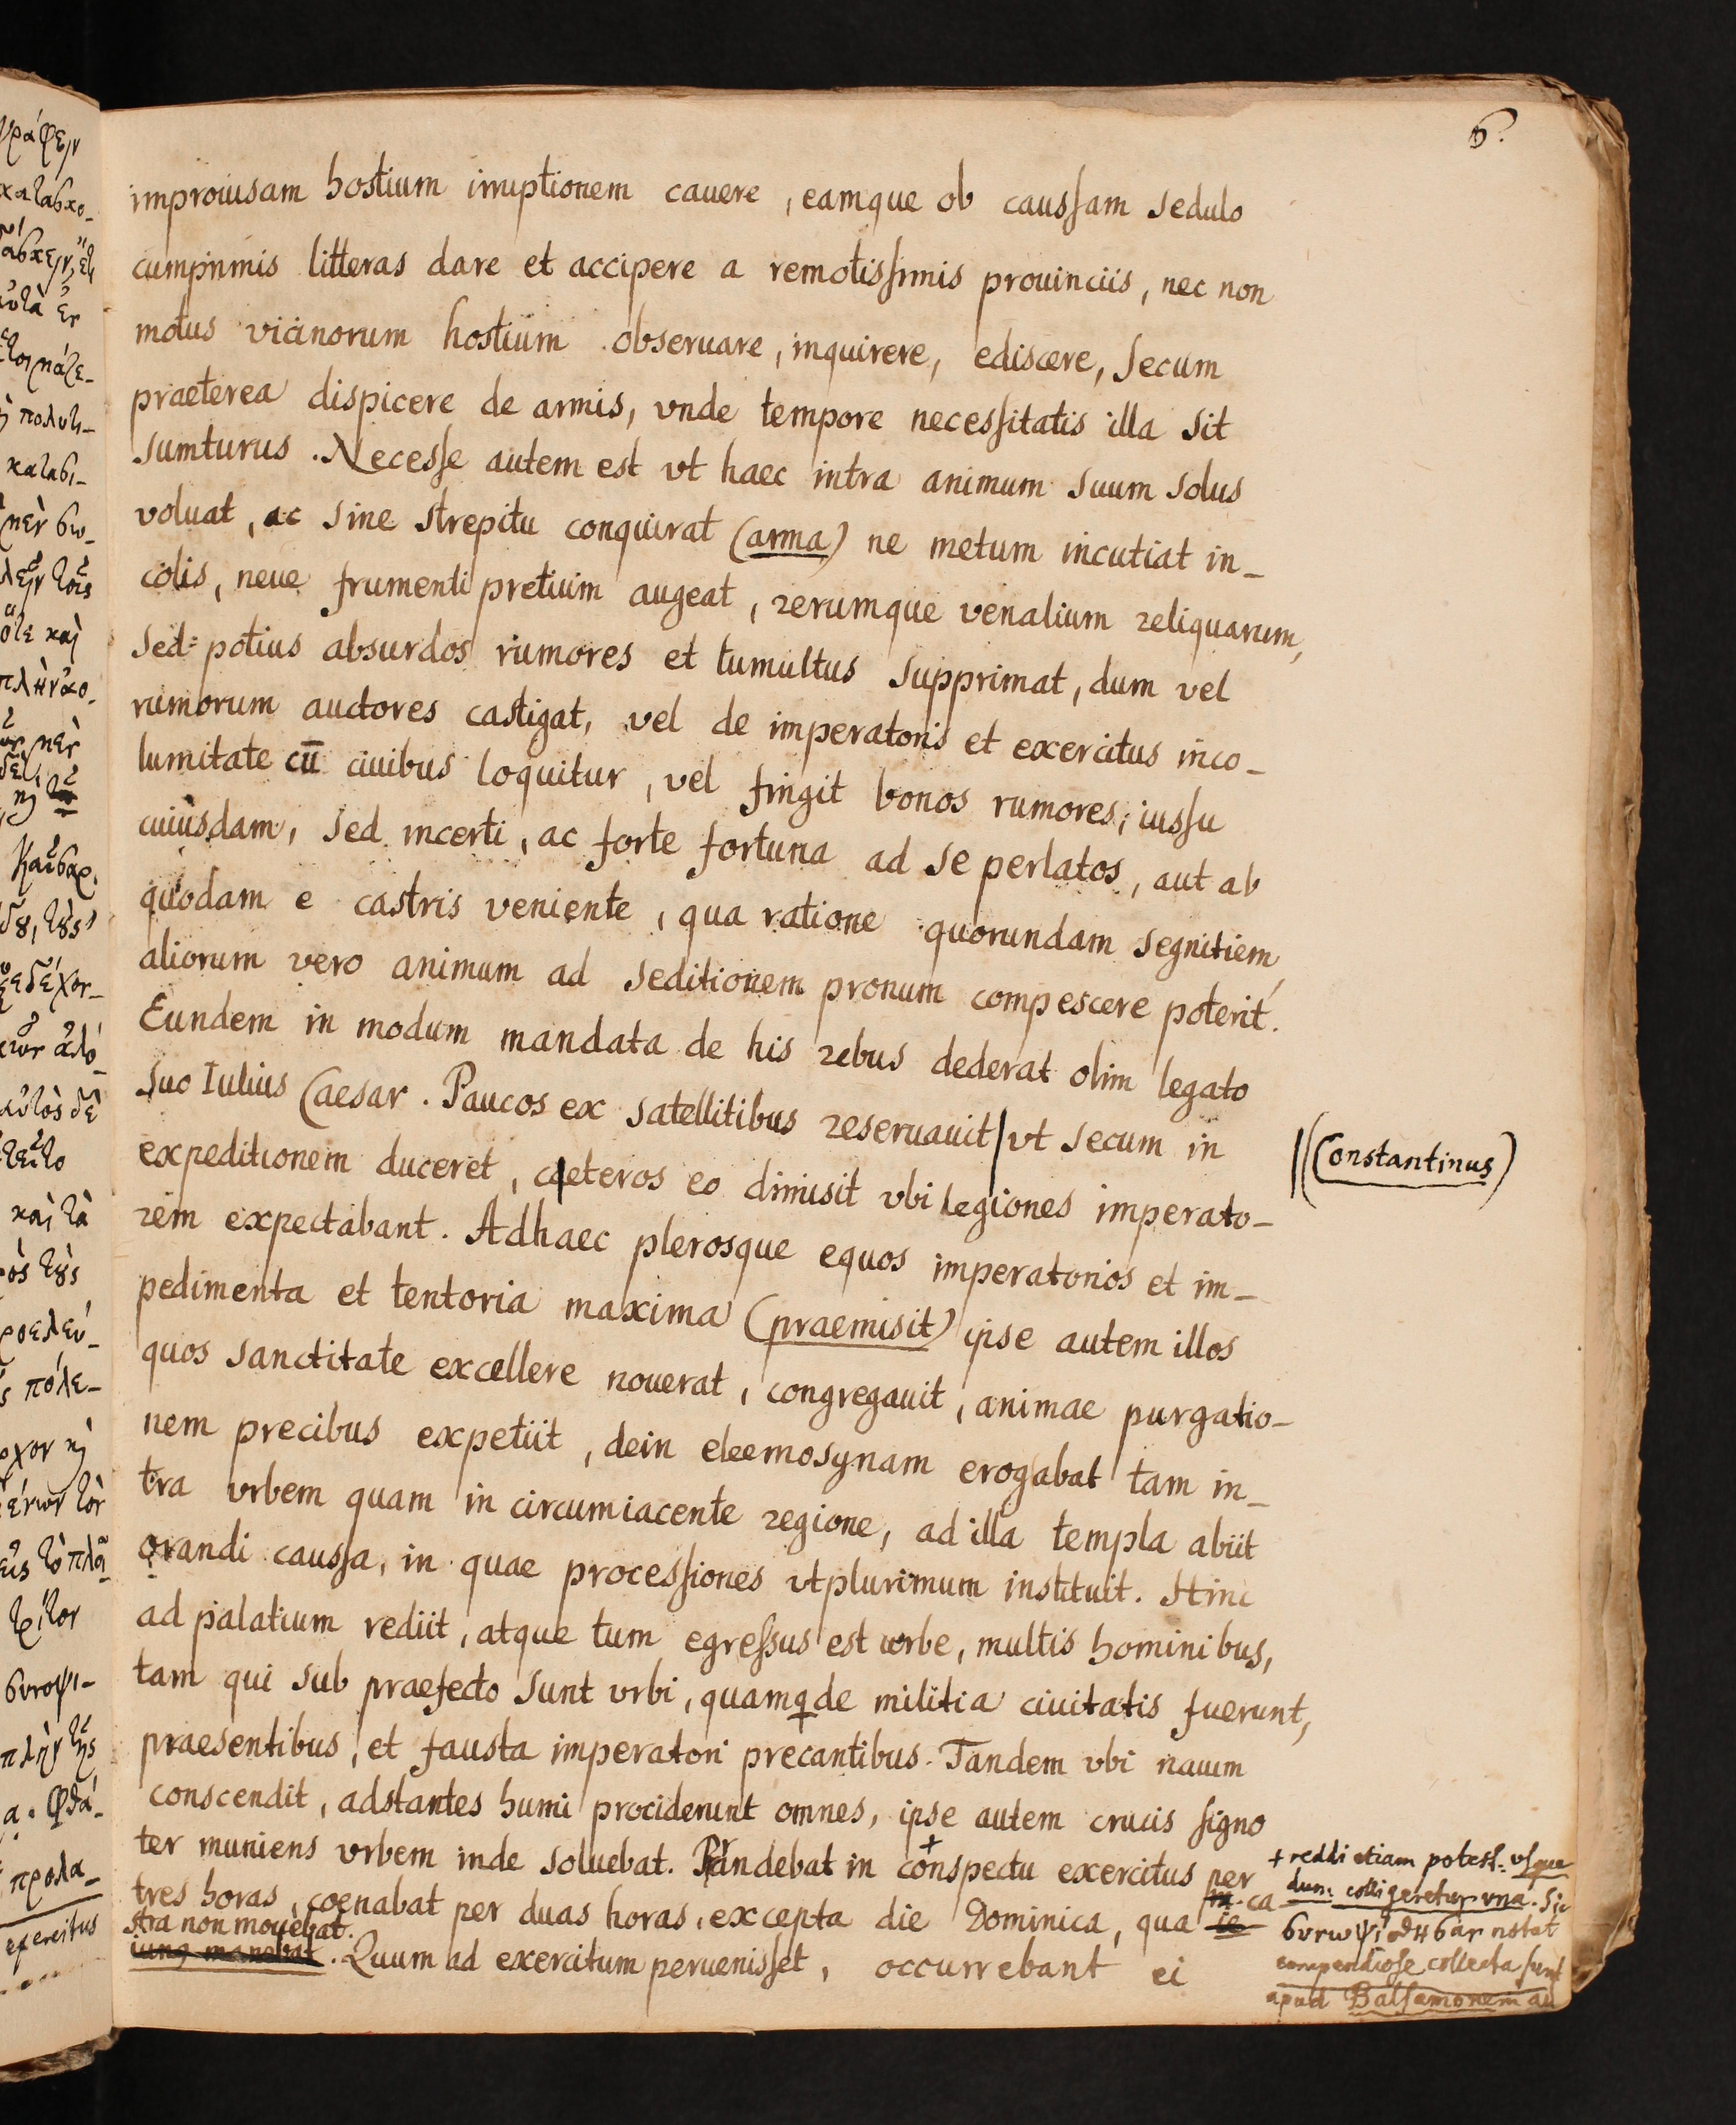 6.
improuisam hostium irruptionem cauere, eamque ob caussam sedulo
cumprimis litteras dare et accipere a remotissimis prouinciis, nec non
motus vicinorum hostium obseruare, inquirere, ediscere, secum
praeterea dispicere de armis, vnde tempore necessitatis illa sit
sumturus. Necesse autem est vt haec intra animum suum solus
voluat, ac sine strepitu conquirat (arma) ne metum incutiat in-
colis, neue frumenti pretium augeat, rerumque venalium reliquarum,
sed potius absurdos rumores et tumultus supprimat, dum vel
rumorum auctores castigat, vel de imperatoris et exercitus inco-
lumitate cū ciuibus loquitur, vel fingit bonos rumores, iussu
cuiusdam, sed incerti, ac forte fortuna ad se perlatos, aut ab
quodam e castris veniente, qua ratione quorundam segnitiem,
aliorum vero animum ad seditionem pronum compescere poterit.
Eundem in modum mandata de his rebus dederat olim legato
suo Iulius Caesar. Paucos ex satellitibus reseruauit | vt secum in
|(Constantinus)
expeditionem duceret, caeteros eo dimisit vbi legiones imperato-
rem expectabant. Adhaec plerosque equos imperatorios et im-
pedimenta et tentoria maxima (praemisit) ipse autem illos
quos sanctitate excellere nouerat, congregauit, animae purgatio-
nem precibus expetiit, dein eleemosynam erogabat tam in-
tra vrbem quam in circumiacente regione, ad illa templa abiit
orandi caussa, in quae processiones vtplurimum instituit. Hinc
ad palatium rediit, atque tum egressus est urbe, multis hominibus,
tam qui sub praefecto sunt vrbi, quam q de militia ciuitatis fuerunt,
praesentibus, et fausta imperatori precantibus. Tandem vbi nauim
conscendit, adstantes humi prociderunt omnes, ipse autem crucis signo
ter muniens vrbem inde soluebat. Prandebat in + conspectu exercitus per
tres horas, coenabat per duas horas, excepta die Dominica, qua ca
stra non mouebat. Quum ad exercitum peruenisset, occurrebant ei
+ reddi etiam potest: usque
dum colligeretur vna. Sic
συνωψίσθησαν notat
compendiose collecta sunt
apud Balsamonem au